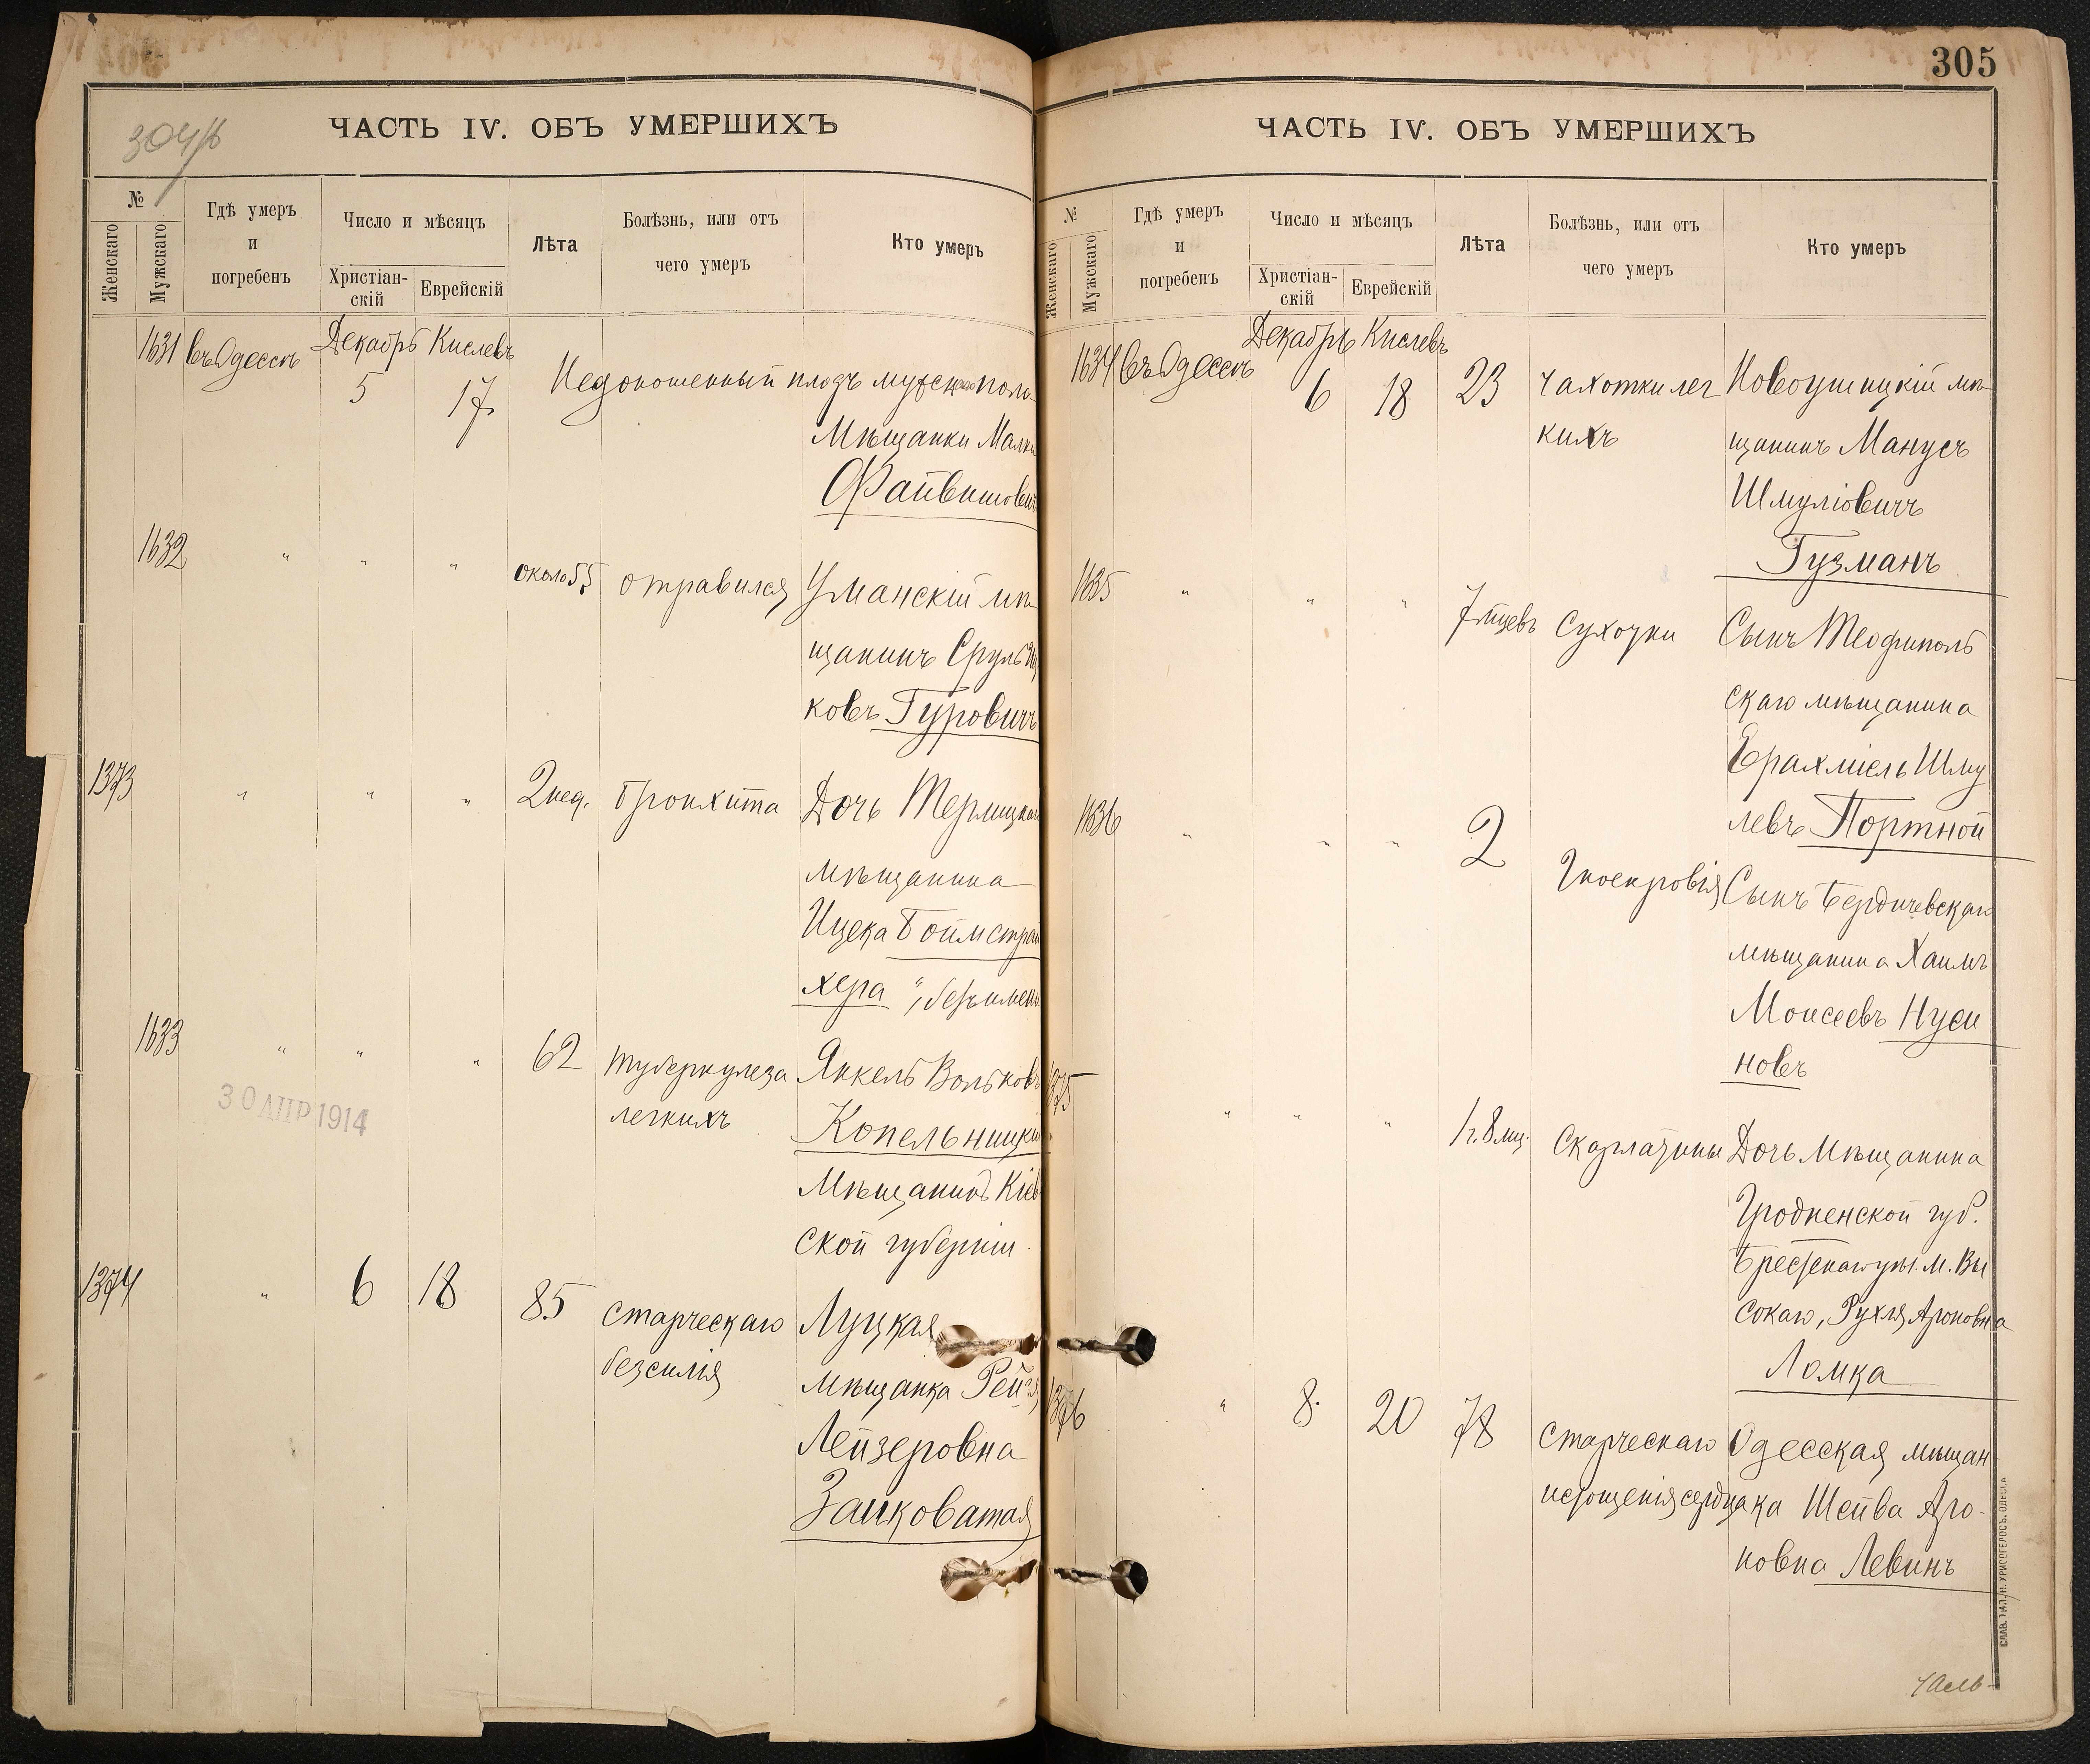 304/б
ЧАСТЬ IV. ОБЪ УМЕРШИХЪ
№
Женскаго
Мужскаго
Гдѣ умеръ
и
погребенъ
Число и мѣсяцъ
Христіан-
скій
Еврейскій
Лѣта
Болѣзнь, или отъ
чего умеръ
Кто умеръ
1631 въ Одессѣ Декабрь Кислевъ
5 17 Недоношенный плодъ мужск пола
Мѣщанки Малки
Файвишович
1632 " " " около 55 отравился Уманскій мѣ
щанинъ Сруль
ковъ Гуровичъ
1373 " " " 2 нед. Бронхита Дочь
мѣщанина
Ицека Боймстрай
хера " безъимен
1633 " " " 62 туберкулеза Янкель Вольковъ
легкихъ Копельницкій
Мѣщанинъ Кіев
ской губерніи.
30 АПР 1914
1374 " 6 18 85 старческаго Луцкая
безсилія мѣщанка Рейзя
Лейзеровна
Заиковатая
305
ЧАСТЬ IV. ОБЪ УМЕРШИХЪ
№
Женскаго
Мужскаго
Гдѣ умеръ
и
погребенъ
Число и мѣсяцъ
Христіан-
скій
Еврейскій
Лѣта
Болѣзнь, или отъ
чего умеръ
Кто умеръ
1634 въ Одессѣ Декабрь Кислевъ
6 18 23 чахотки лег Новоушицкій мѣ
кихъ щанинъ Манусъ
Шмуліовичъ
Гузманъ
1635 " " " 7 мцевъ Сухотки Сынъ Теофиполь
скаго мѣщанина
Ерахміель Шму
левъ Портной
1636 " " " 2 Гноекровія Сынъ Бердичевскаго
мѣщанина Хаимъ
Моисеевъ Нуси
новъ
1375 " " " 1 г. 8 мц. Скарлатины Дочь Мѣщанина
Гродненской губ.
Брестскаго уѣз. м. Вы
сокаго, Рухля Ароновна
Ломка
1376 " 8. 20 78 старческаго Одесская мѣщан
истощенія сердца ка Шейва Аро-
новна Левинъ
СЛАВ. ТИП. Н. ХРИСОГЕЛОСЪ. ОДЕССА